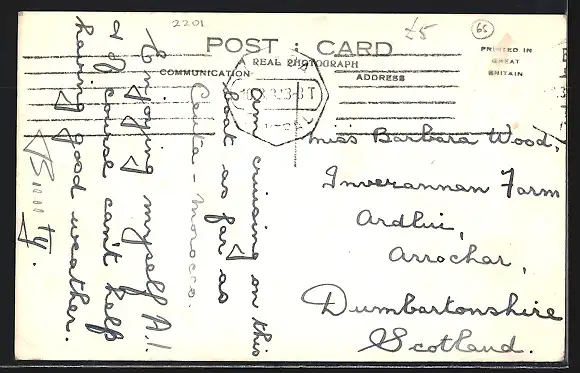 2201
£5
65
POST CARD
A REAL PHOTOGRAPH
COMMUNICATION
ADDRESS
PRINTED IN
GREAT
BRITAIN
Am cruising on this
boat as far as
Ceuta - Morocco.
Enjoying myself A.1.
& of course can't help
having good weather.
Miss Barbara Wood,
Inverannan Farm
Ardlui,
Arrochar,
Dumbartonshire
Scotland.